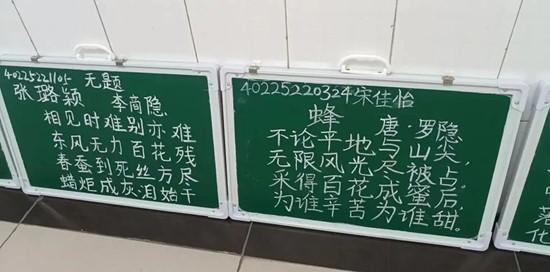 40225221105 无题
张璐颖 李商隐
相见时难别亦难
东风无力百花残
春蚕到死丝方尽
蜡炬成灰泪始干
40225220324宋佳怡
蜂 唐·罗隐
不论平地与山尖,
无限风光尽被占。
采得百花成蜜后,
为谁辛苦为谁甜。
落
化